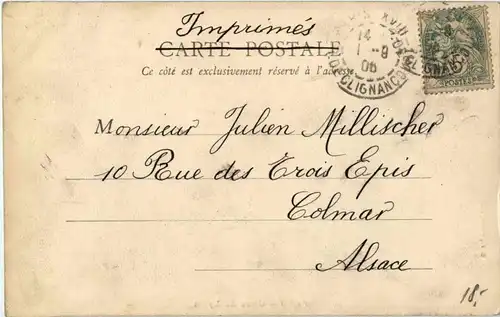 Imprimés
CARTE POSTALE
Ce côté est exclusivement réservé à l'adresse
14
1 - 9
06
CLIGNANCOURT
POSTES
Monsieur Julien Millischer
10 Rue des Trois Epis
Colmar
Alsace
18.-